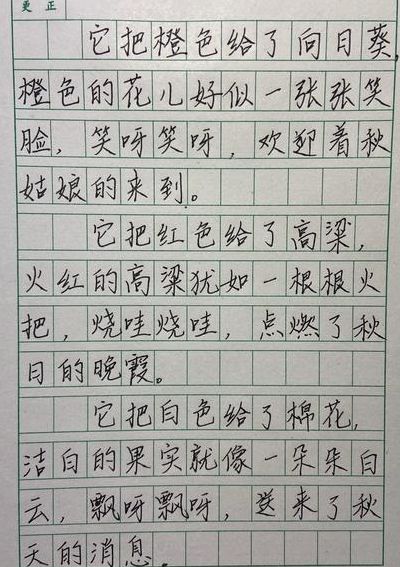 更正
它把橙色给了向日葵,
橙色的花儿好似一张张笑
脸,笑呀笑呀,欢迎着秋
姑娘的来到。
它把红色给了高梁,
火红的高梁犹如一根根火
把,烧哇烧哇,点燃了秋
日的晚霞。
它把白色给了棉花,
洁白的果实就像一朵朵白
云,飘呀飘呀,送来了秋
天的消息.